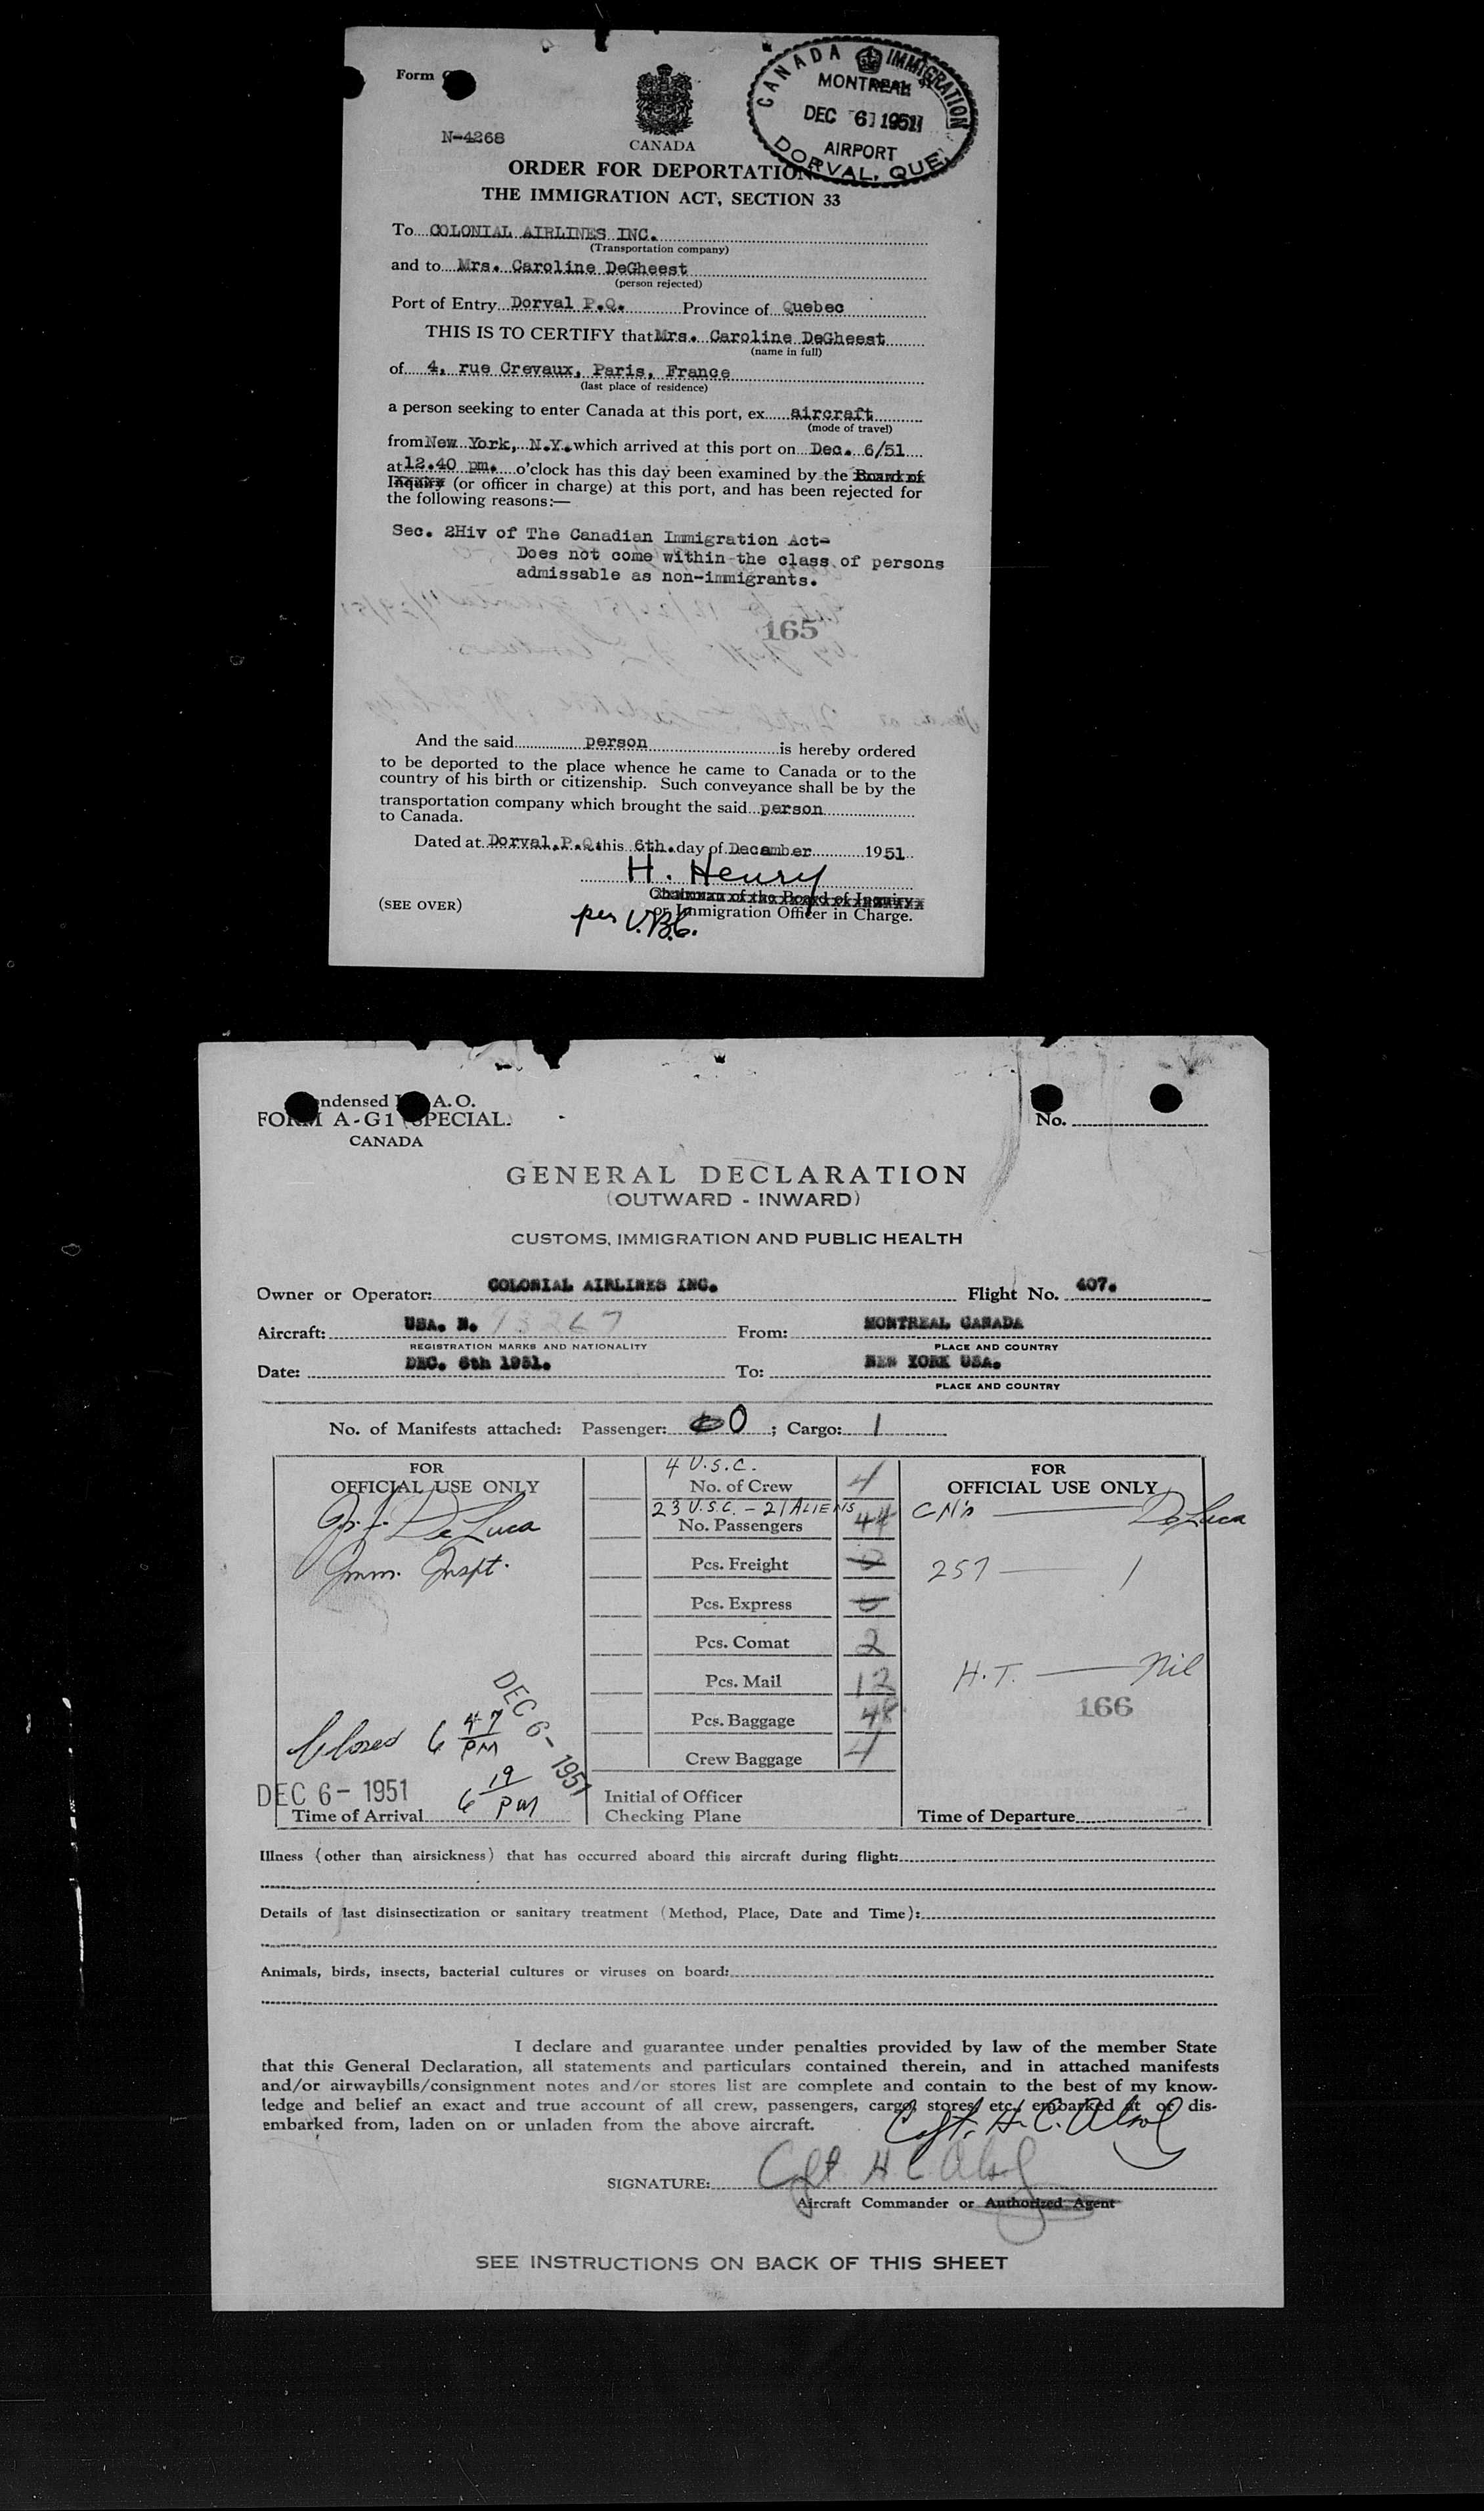 Form
N-4268
CANADA
CANADA IMMIGRATION
MONTREAL
DEC 6 1951
AIRPORT
DORVAL, QUE.
ORDER FOR DEPORTATION
THE IMMIGRATION ACT, SECTION 33
To COLONIAL AIRLINES INC.
(Transportation company)
and to Mrs. Caroline DeGheest
(person rejected)
Port of Entry Dorval P.Q. Province of Quebec
THIS IS TO CERTIFY that Mrs. Caroline DeGheest
(name in full)
of 4, rue Crevaux, Paris, France
(last place of residence)
a person seeking to enter Canada at this port, ex aircraft
(mode of travel)
from New York, N.Y. which arrived at this port on Dec. 6/51
at 12.40 pm. o'clock has this day been examined by the Board of
Inquiry (or officer in charge) at this port, and has been rejected for
the following reasons:—
Sec. 2Hiv of The Canadian Immigration Act-
Does not come within the class of persons
admissable as non-immigrants.
165
And the said person is hereby ordered
to be deported to the place whence he came to Canada or to the
country of his birth or citizenship. Such conveyance shall be by the
transportation company which brought the said person
to Canada.
Dated at Dorval, P.Q. this 6th. day of December 1951
H. Henry
Chairman of the Board of Inquiry
(SEE OVER)
or Immigration Officer in Charge.
per V.B.C.
ndensed A.O.
FORM A-G1 (SPECIAL.
CANADA
No.
GENERAL DECLARATION
(OUTWARD - INWARD)
CUSTOMS, IMMIGRATION AND PUBLIC HEALTH
Owner or Operator: COLONIAL AIRLINES INC. Flight No. 407.
Aircraft: USA. N. 93267 From: MONTREAL CANADA
REGISTRATION MARKS AND NATIONALITY PLACE AND COUNTRY
Date: DEC. 6th 1951. To: NEW YORK USA.
PLACE AND COUNTRY
No. of Manifests attached: Passenger: 0 ; Cargo: 1
FOR
OFFICIAL USE ONLY
De Luca
Imm. Inspt.
DEC 6 - 1951
Closed 6 47 PM
DEC 6 - 1951
6 19 PM
Time of Arrival
4 U.S.C.
No. of Crew 4
23 U.S.C. - 21 ALIENS
No. Passengers 44
Pcs. Freight 0
Pcs. Express 0
Pcs. Comat 2
Pcs. Mail 12
Pcs. Baggage 48
Crew Baggage 4
Initial of Officer
Checking Plane
FOR
OFFICIAL USE ONLY
CN's — DeLuca
257 — 1
H.T. — Nil
166
Time of Departure
Illness (other than airsickness) that has occurred aboard this aircraft during flight:
Details of last disinsectization or sanitary treatment (Method, Place, Date and Time):
Animals, birds, insects, bacterial cultures or viruses on board:
I declare and guarantee under penalties provided by law of the member State
that this General Declaration, all statements and particulars contained therein, and in attached manifests
and/or airwaybills/consignment notes and/or stores list are complete and contain to the best of my know-
ledge and belief an exact and true account of all crew, passengers, cargo, stores, etc., embarked at or dis-
embarked from, laden on or unladen from the above aircraft.
Capt. H. C.
SIGNATURE: Capt. H C
Aircraft Commander or Authorized Agent
SEE INSTRUCTIONS ON BACK OF THIS SHEET